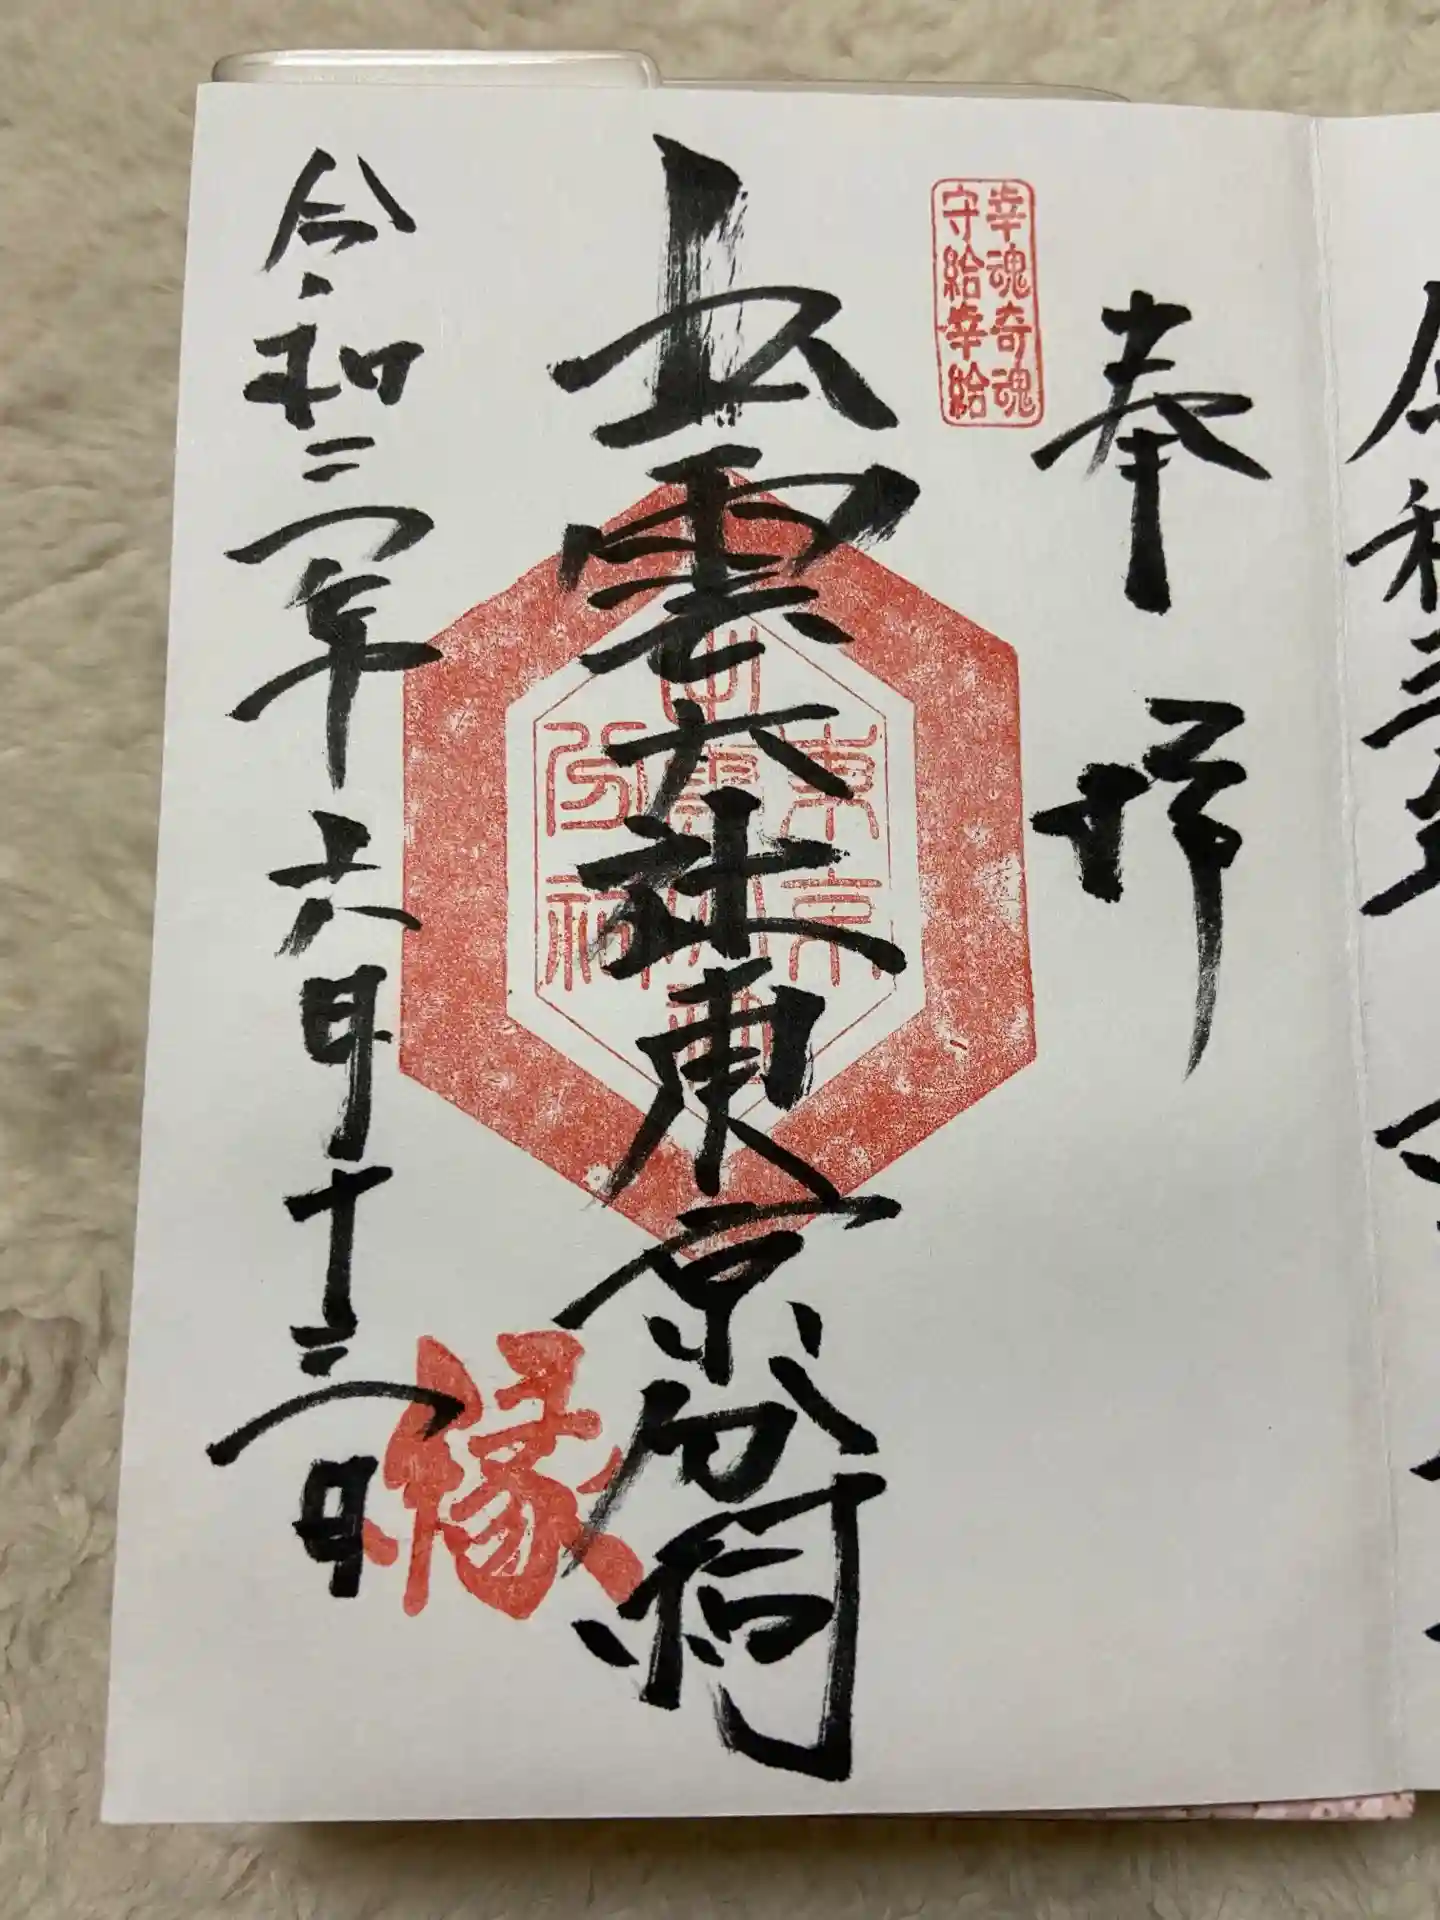 奉拝
幸魂奇魂
守給幸給
出雲大社東京分祠
東京
分祠
縁
令和三年六月十三日